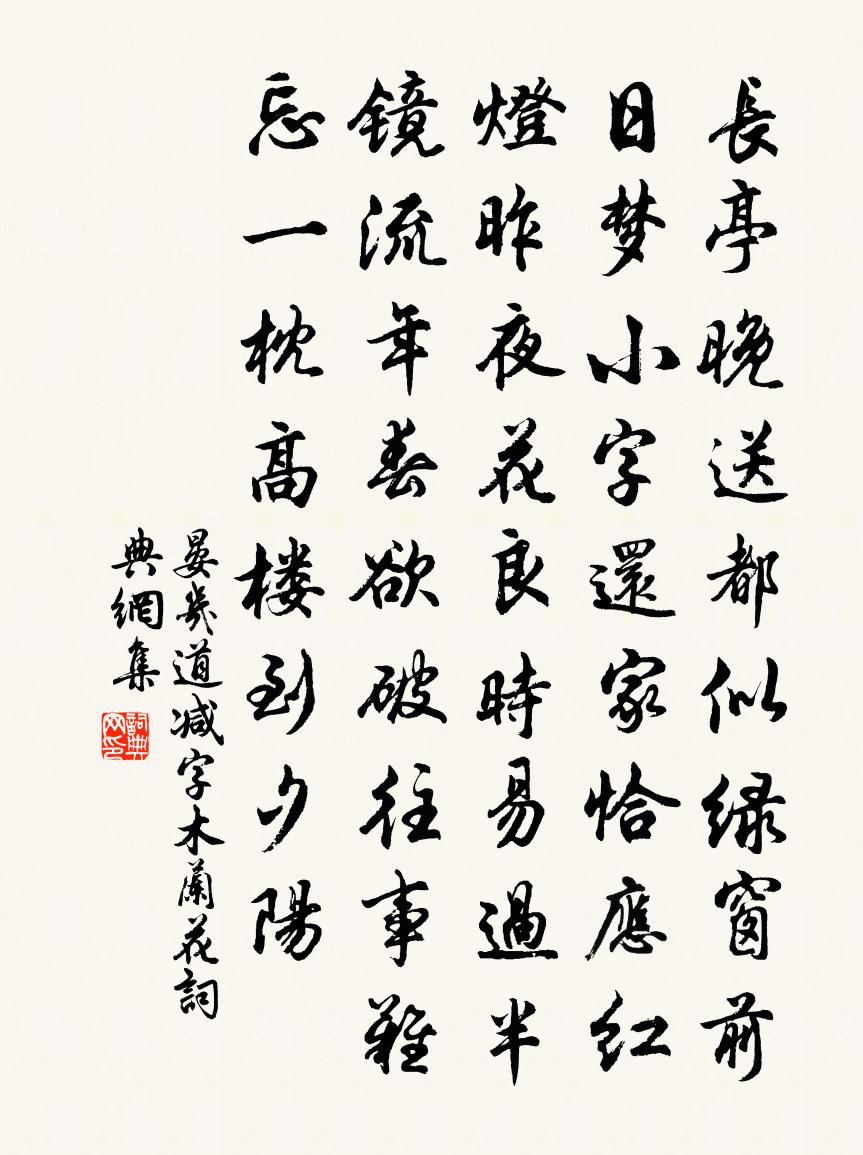 長亭晚送都似绿窗前
日梦小字還家恰應红
燈昨夜花良時易過半
镜流年春欲破往事難
忘一枕高楼到夕陽
晏幾道减字木蘭花詞
典網集
詞典网印